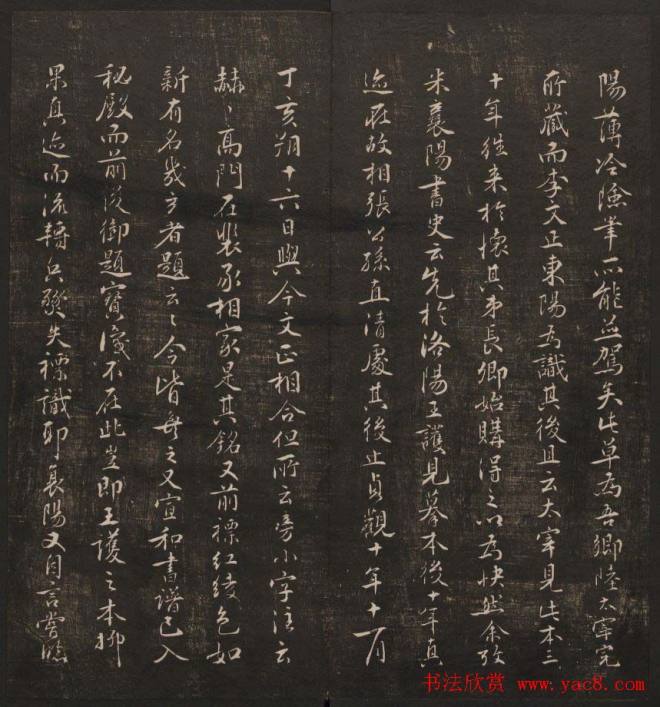 陽薄冷險筆所能並駕矣此草為吾鄉陸太宰完
所藏而李文正東陽為識其後且云太宰見此本三
十年往来於懷其弟長卿始購得之以為快然余攷
米襄陽書史云先於洛陽王護見摹本後十年真
迹在故相張公孫直清處其後止貞觀十年十一月
丁亥朔十六日與今文正相合但所云旁小字注云
赫〻高門在裴丞相家是其銘又前標紅綾色如
新有名幾才者題云〻今皆無之又宣和書譜已入
秘殿而前後御題寶瀋不在此豈即王護之本抑
果真迹而流轉兵燹失標識耶襄陽又自言嘗臨
书法欣赏 www.yac8.com